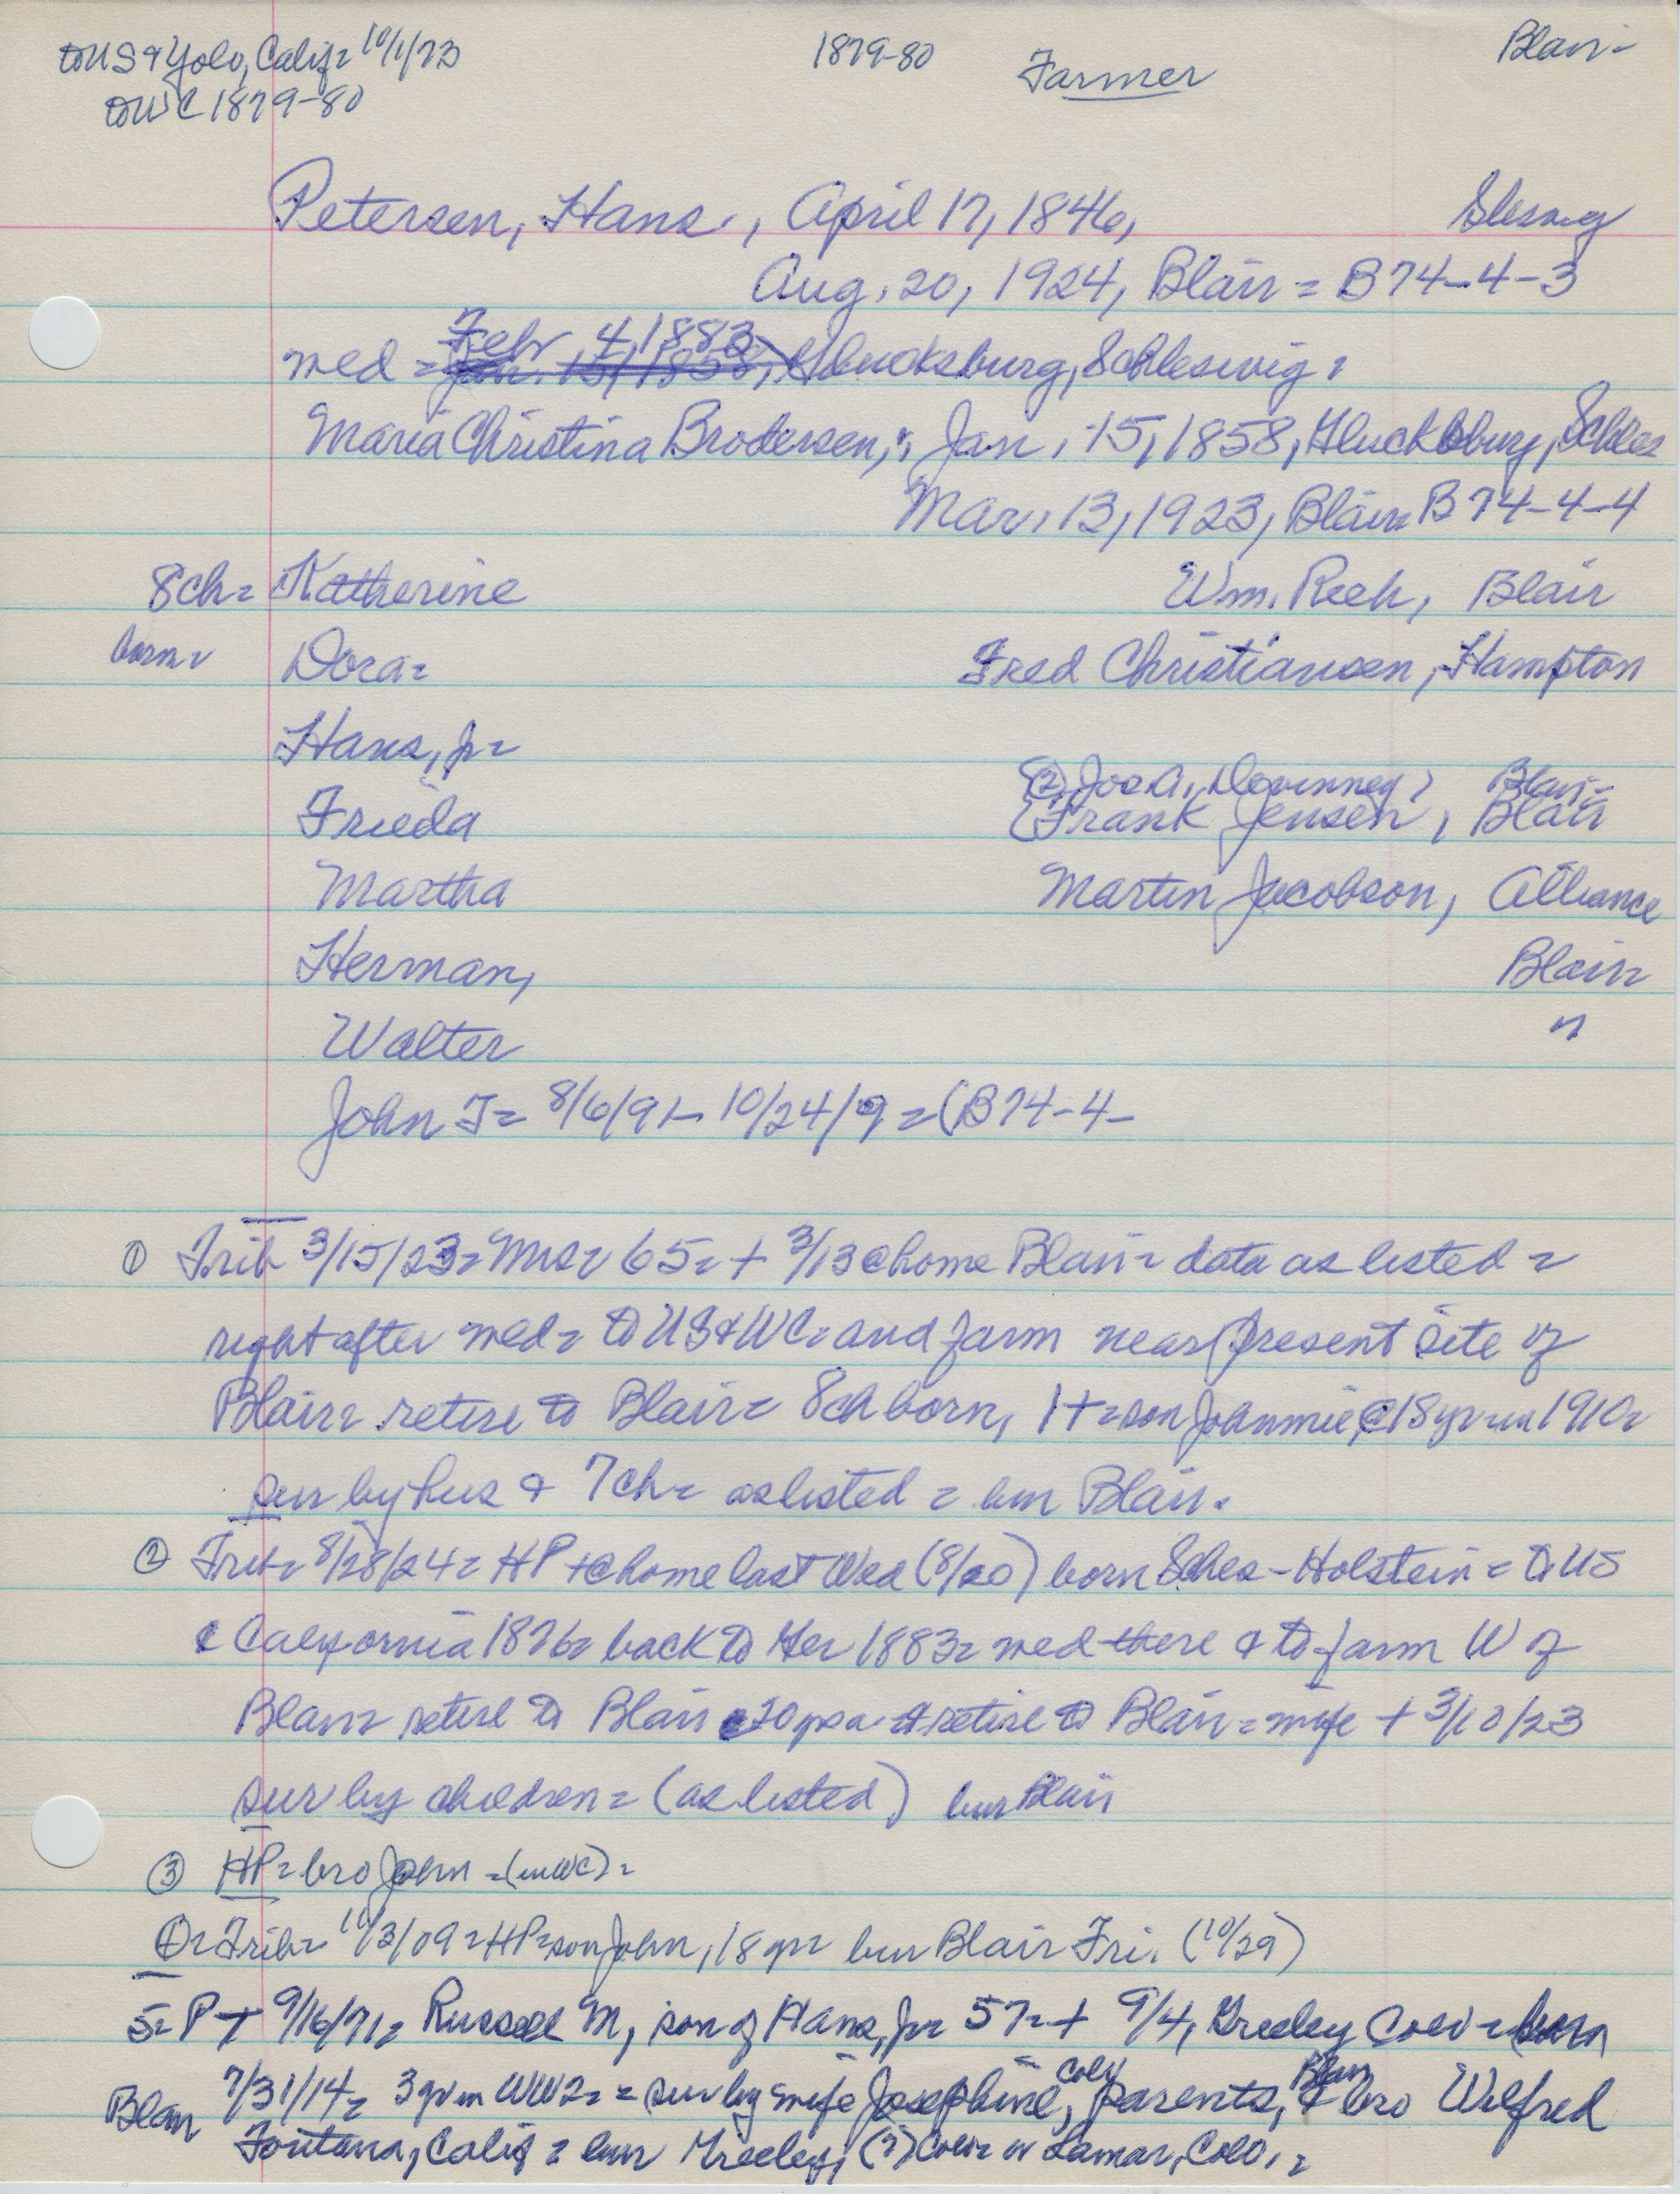 to US & Yolo, Calif = 10/1/73 1879-80 Farmer Blair =
to WC 1879-80
Petersen, Hans, April 17, 1846, Slesvig
Aug. 20, 1924, Blair = B 74-4-3
Febr 4, 1883,
med = Jan. 15, 1858, Glucksburg, Schleswig =
Maria Christina Brodersen, Jan. 15, 1858, Glucksburg, Schles
Mar. 13, 1923, Blair = B 74-4-4
8 ch = Katherine Wm. Reeh, Blair
born = Dora = Fred Christiansen, Hampton
Hans, jr =
② Jos A. Devinney, Blair =
Frieda Frank Jensen, Blair
Martha Martin Jacobson, Alliance
Herman, Blair =
Walter "
John T = 8/6/91 - 10/24/9 = (B 74-4-
① Trib 3/15/23 = Mrs = 65 = + 3/13 @ home Blair = data as listed =
right after med = to US & WC = and farm near present site of
Blair = retire to Blair = 8 ch born, 1 + = son Johnnie, @ 18 yr in 1910 =
sur by hus & 7 ch = as listed = bur Blair.
② Trib = 8/28/24 = HP + @ home last Wed (8/20) born Schles-Holstein = to US
& California 1876 = back to Ger 1883 = med there & to farm W of
Blair = retire to Blair 20 retire to Blair = wife + 3/10/23
sur by children = (as listed) bur Blair
③ HP = bro John = (in WC) =
Trib = 11/3/09 = HP = son John, 18 yr = bur Blair Fri. (10/29)
5 = P T 9/16/71 = Russell M, son of Hans, jr = 57 = + 9/4, Greeley Colo = born
Colo Blair
Blair 7/31/14 = 3 yr in WW2 = = sur by wife Josephine, parents, & bro Wilfred
Fontana, Calif = bur Greeley, (?) Colo = or Lamar, Colo. =